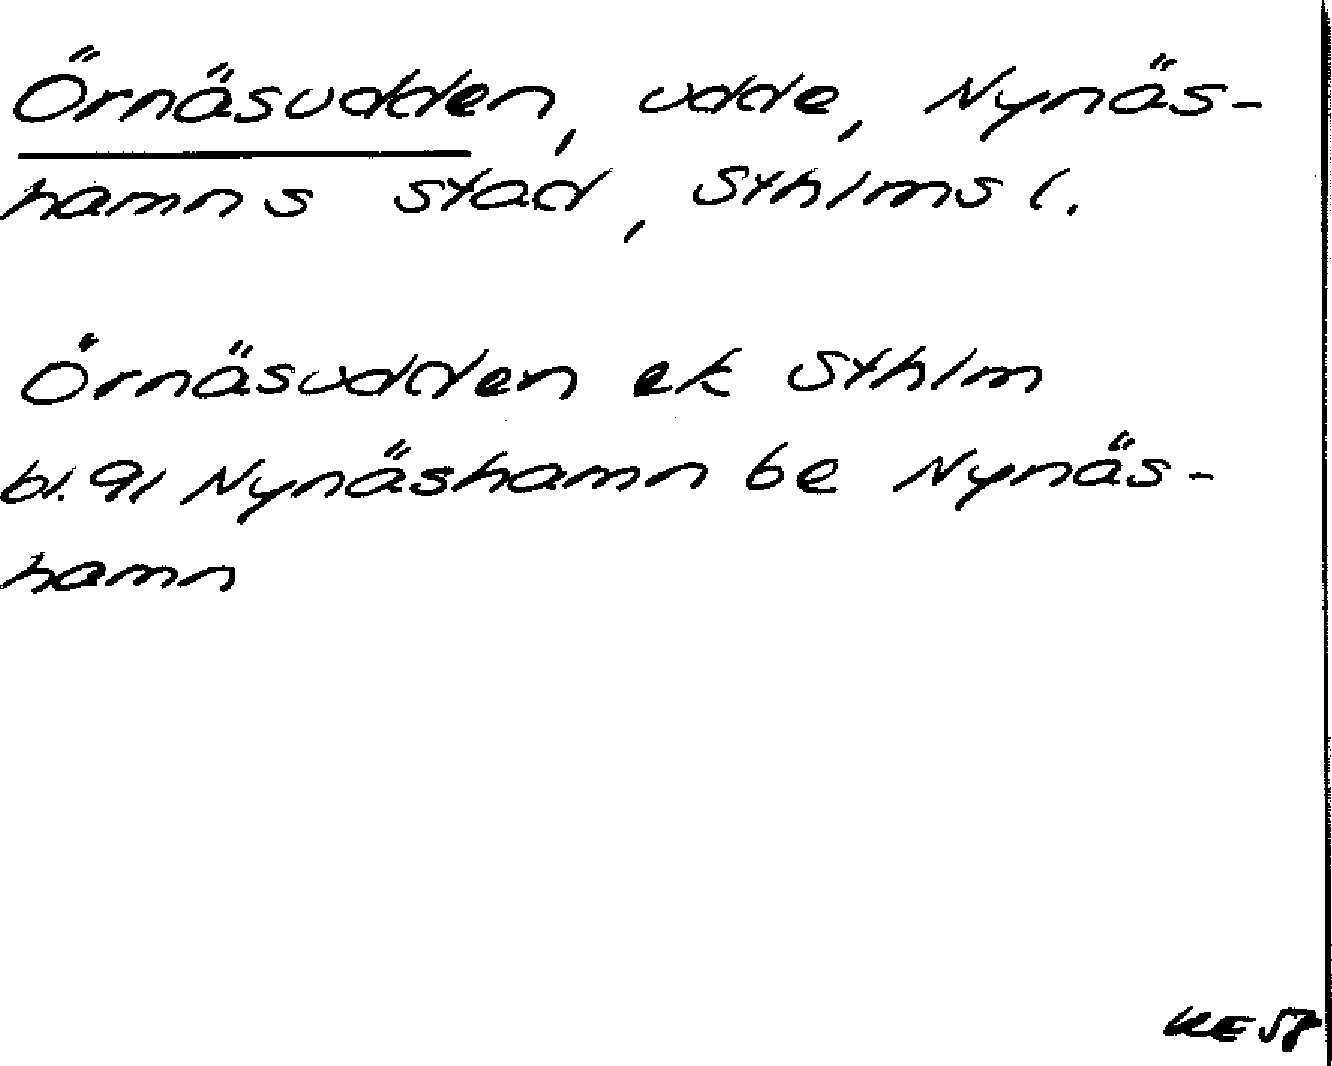 Örnäsudden, udde, Nynäs-
hamns stad, Sthlms l.
Örnäsudden ek Sthlm
bl. 91 Nynäshamn be Nynäs-
hamn
KE 58